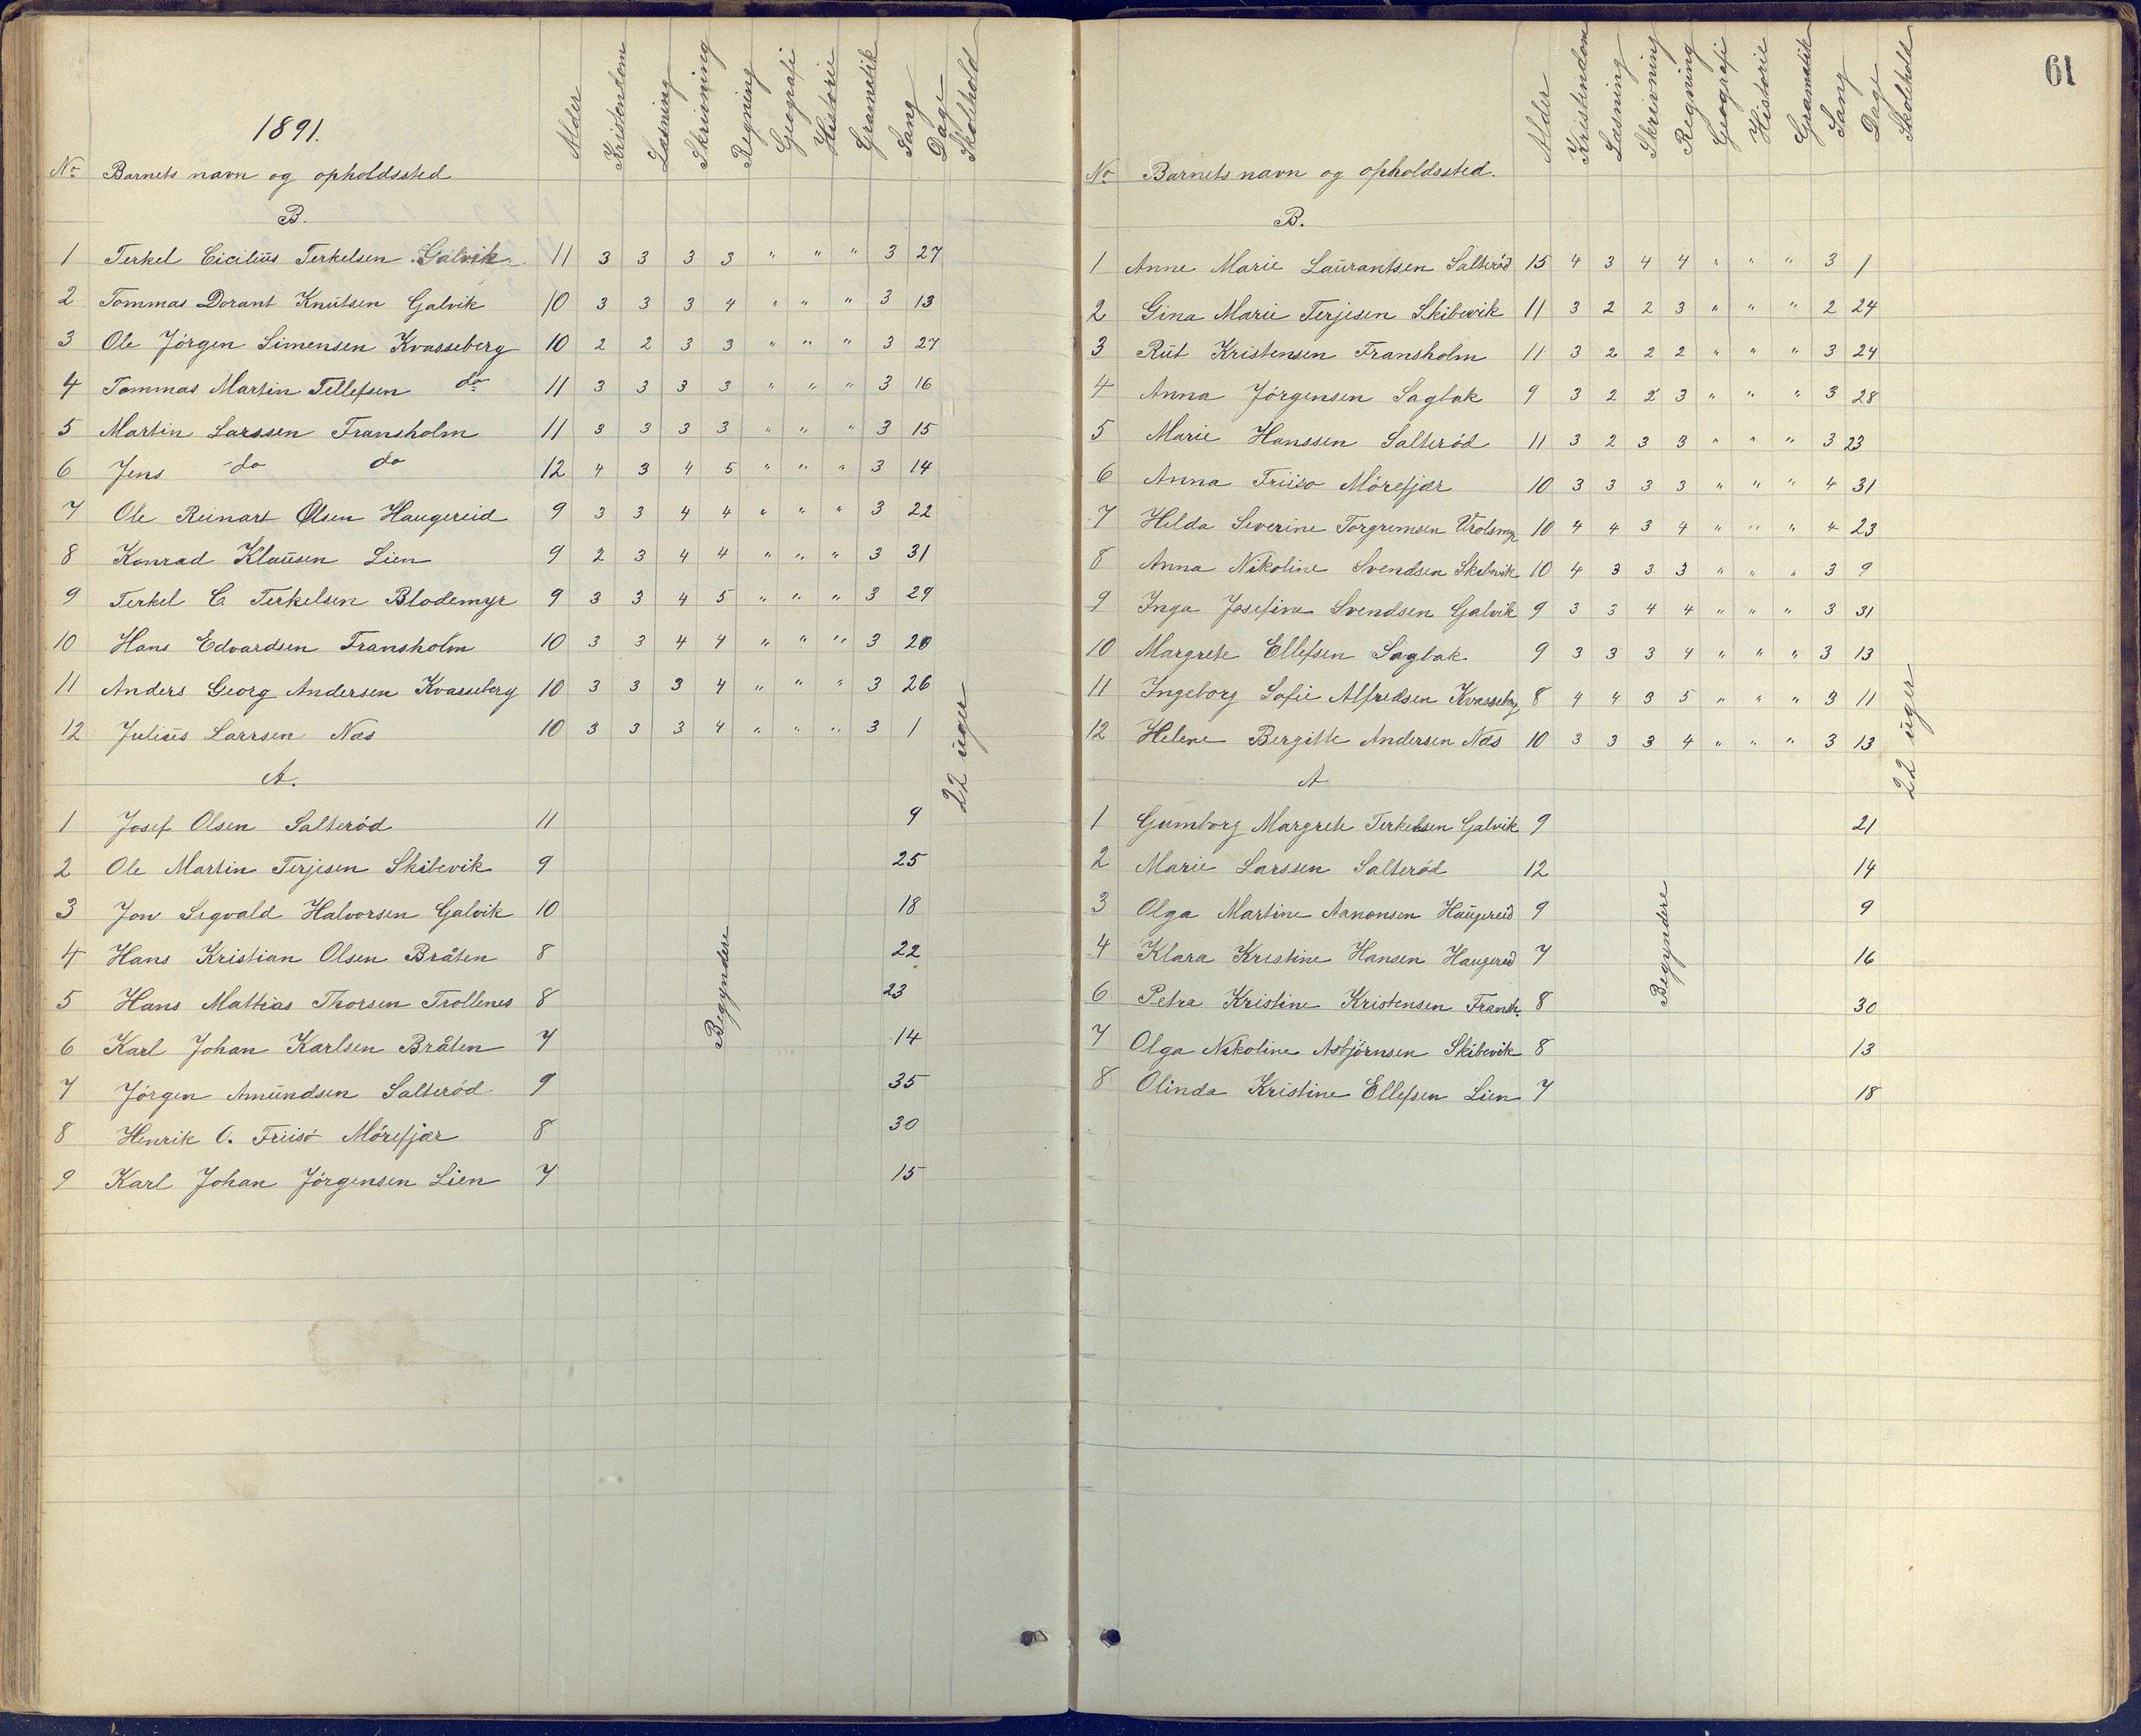 1891.
No Barnets navn og opholdssted Alder Kristendom Læsning Skrivning Regning Geografi Historie Gramatik Sang Dage Skolehold
B.
1 Terkel Cicilius Terkelsen Galvik 11 3 3 3 3 " " " 3 27
2 Tommas Dorant Knutsen Galvik 10 3 3 3 4 " " " 3 13
3 Ole Jörgen Simensen Kvasseberg 10 2 2 3 3 " " " 3 27
4 Tommas Martin Tellefsen do 11 3 3 3 3 " " " 3 16
5 Martin Larssen Fransholm 11 3 3 3 3 " " " 3 15
6 Jens do do 12 4 3 4 5 " " " 3 14
7 Ole Reinart Olsen Haugereid 9 3 3 4 4 " " " 3 22
8 Konrad Klausen Lien 9 2 3 4 4 " " " 3 31
9 Terkel C Terkelsen Blodemyr 9 3 3 4 5 " " " 3 29
10 Hans Edvardsen Fransholm 10 3 3 4 4 " " " 3 20
11 Anders Georg Andersen Kvasseberg 10 3 3 3 4 " " " 3 26
12 Julius Larrsen Næs 10 3 3 3 4 " " " 3 1
22 uger
A.
1 Josef Olsen Salteröd 11 9
2 Ole Martin Terjesen Skibevik 9 25
3 Jon Sigvald Halvorsen Galvik 10 18
4 Hans Kristian Olsen Bråten 8 22
5 Hans Mathias Thorsen Trollenes 8 23
6 Karl Johan Karlsen Bråten 7 14
7 Jörgen Amundsen Salteröd 9 35
8 Henrik O. Friisö Mörefjær 8 30
9 Karl Johan Jörgensen Lien 7 15
Begyndere
61
No Barnets navn og opholdssted. Alder Kristendom Læsning Skrivning Regning Geografi Historie Gramatik Sang Dage Skolehold
B.
1 Anne Marie Laurantsen Salteröd 15 4 3 4 4 " " " 3 1
2 Gina Marie Terjesen Skibevik 11 3 2 2 3 " " " 2 24
3 Rut Kristensen Fransholm 11 3 2 2 2 " " " 3 24
4 Anna Jörgensen Sagbak 9 3 2 2 3 " " " 3 28
5 Marie Hanssen Salteröd 11 3 2 3 3 " " " 3 23
6 Anna Friisø Mörefjær 10 3 3 3 3 " " " 4 31
7 Helda Severine Torgrimsen 10 4 4 3 4 " " " 4 23
8 Anna Nikoline Svendsen Skibevik 10 4 3 3 3 " " " 3 9
9 Inga Josefine Svendsen Galvik 9 3 3 4 4 " " " 3 31
10 Margrete Ellefsen Sagbak 9 3 3 3 4 " " " 3 13
11 Ingeborg Sofie Alfredsen Kvasseberg 8 4 4 3 5 " " " 3 11
12 Helene Bergitte Andersen Næs 10 3 3 3 4 " " " 3 13
22 uger
A
1 Gumborg Margrete Terkelsen Galvik 9 21
2 Marie Larssen Salteröd 12 14
3 Olga Martine Aanonsen Haugereid 9 9
4 Klara Kristine Hansen Haugereid 7 16
6 Petra Kristine Kristensen Fransh. 8 30
7 Olga Nikoline Asbjörnsen Skibevik 8 13
8 Olinda Kristine Ellefsen Lien 7 18
Begyndere